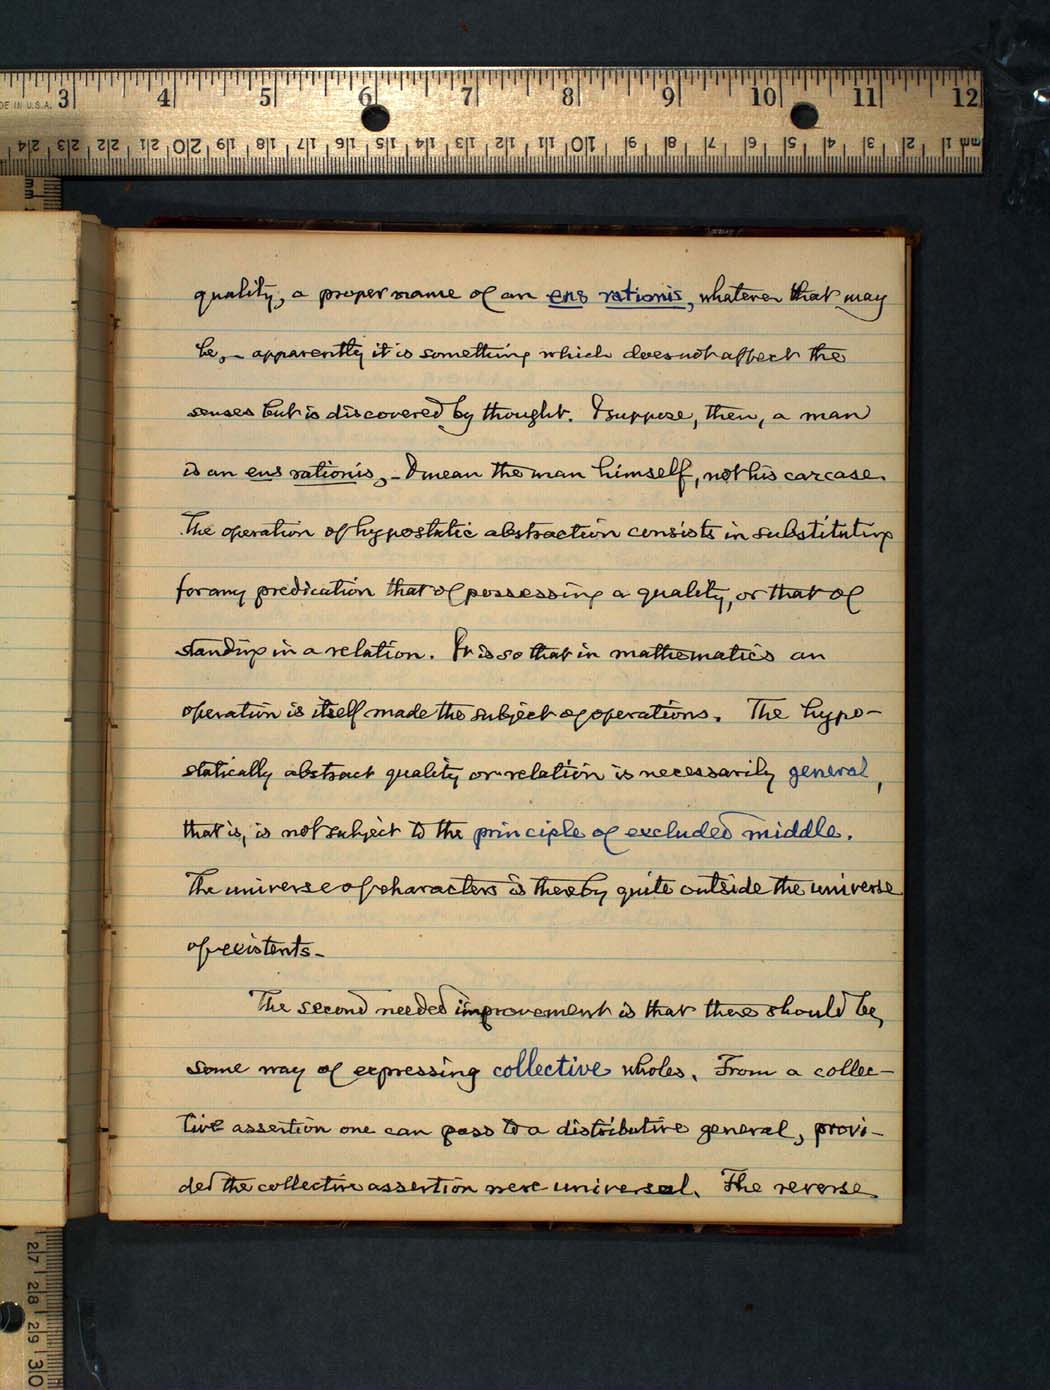 MADE IN U.S.A. 3 4 5 6 7 8 9 10 11 12
24 23 22 21 20 19 18 17 16 15 14 13 12 11 10 9 8 7 6 5 4 3 2 1 mm
mm
quality, a proper name of an ens rationis, whatever that may
be, – apparently it is something which does not affect the
senses but is discovered by thought. I suppose, then, a man
is an ens rationis, – I mean the man himself, not his carcase.
The operation of hypostatic abstraction consists in substituting
for any predication that of possessing a quality, or that of
standing in a relation. It is so that in mathematics an
operation is itself made the subject of operations. The hypo-
statically abstract quality or relation is necessarily general,
that is, is not subject to the principle of excluded middle.
The universe of characters is thereby quite outside the universe
of existents.
The second needed improvement is that there should be
some way of expressing collective wholes. From a collec-
tive assertion one can pass to a distributive general, provi-
ded the collective assertion were universal. The reverse
27 28 29 30